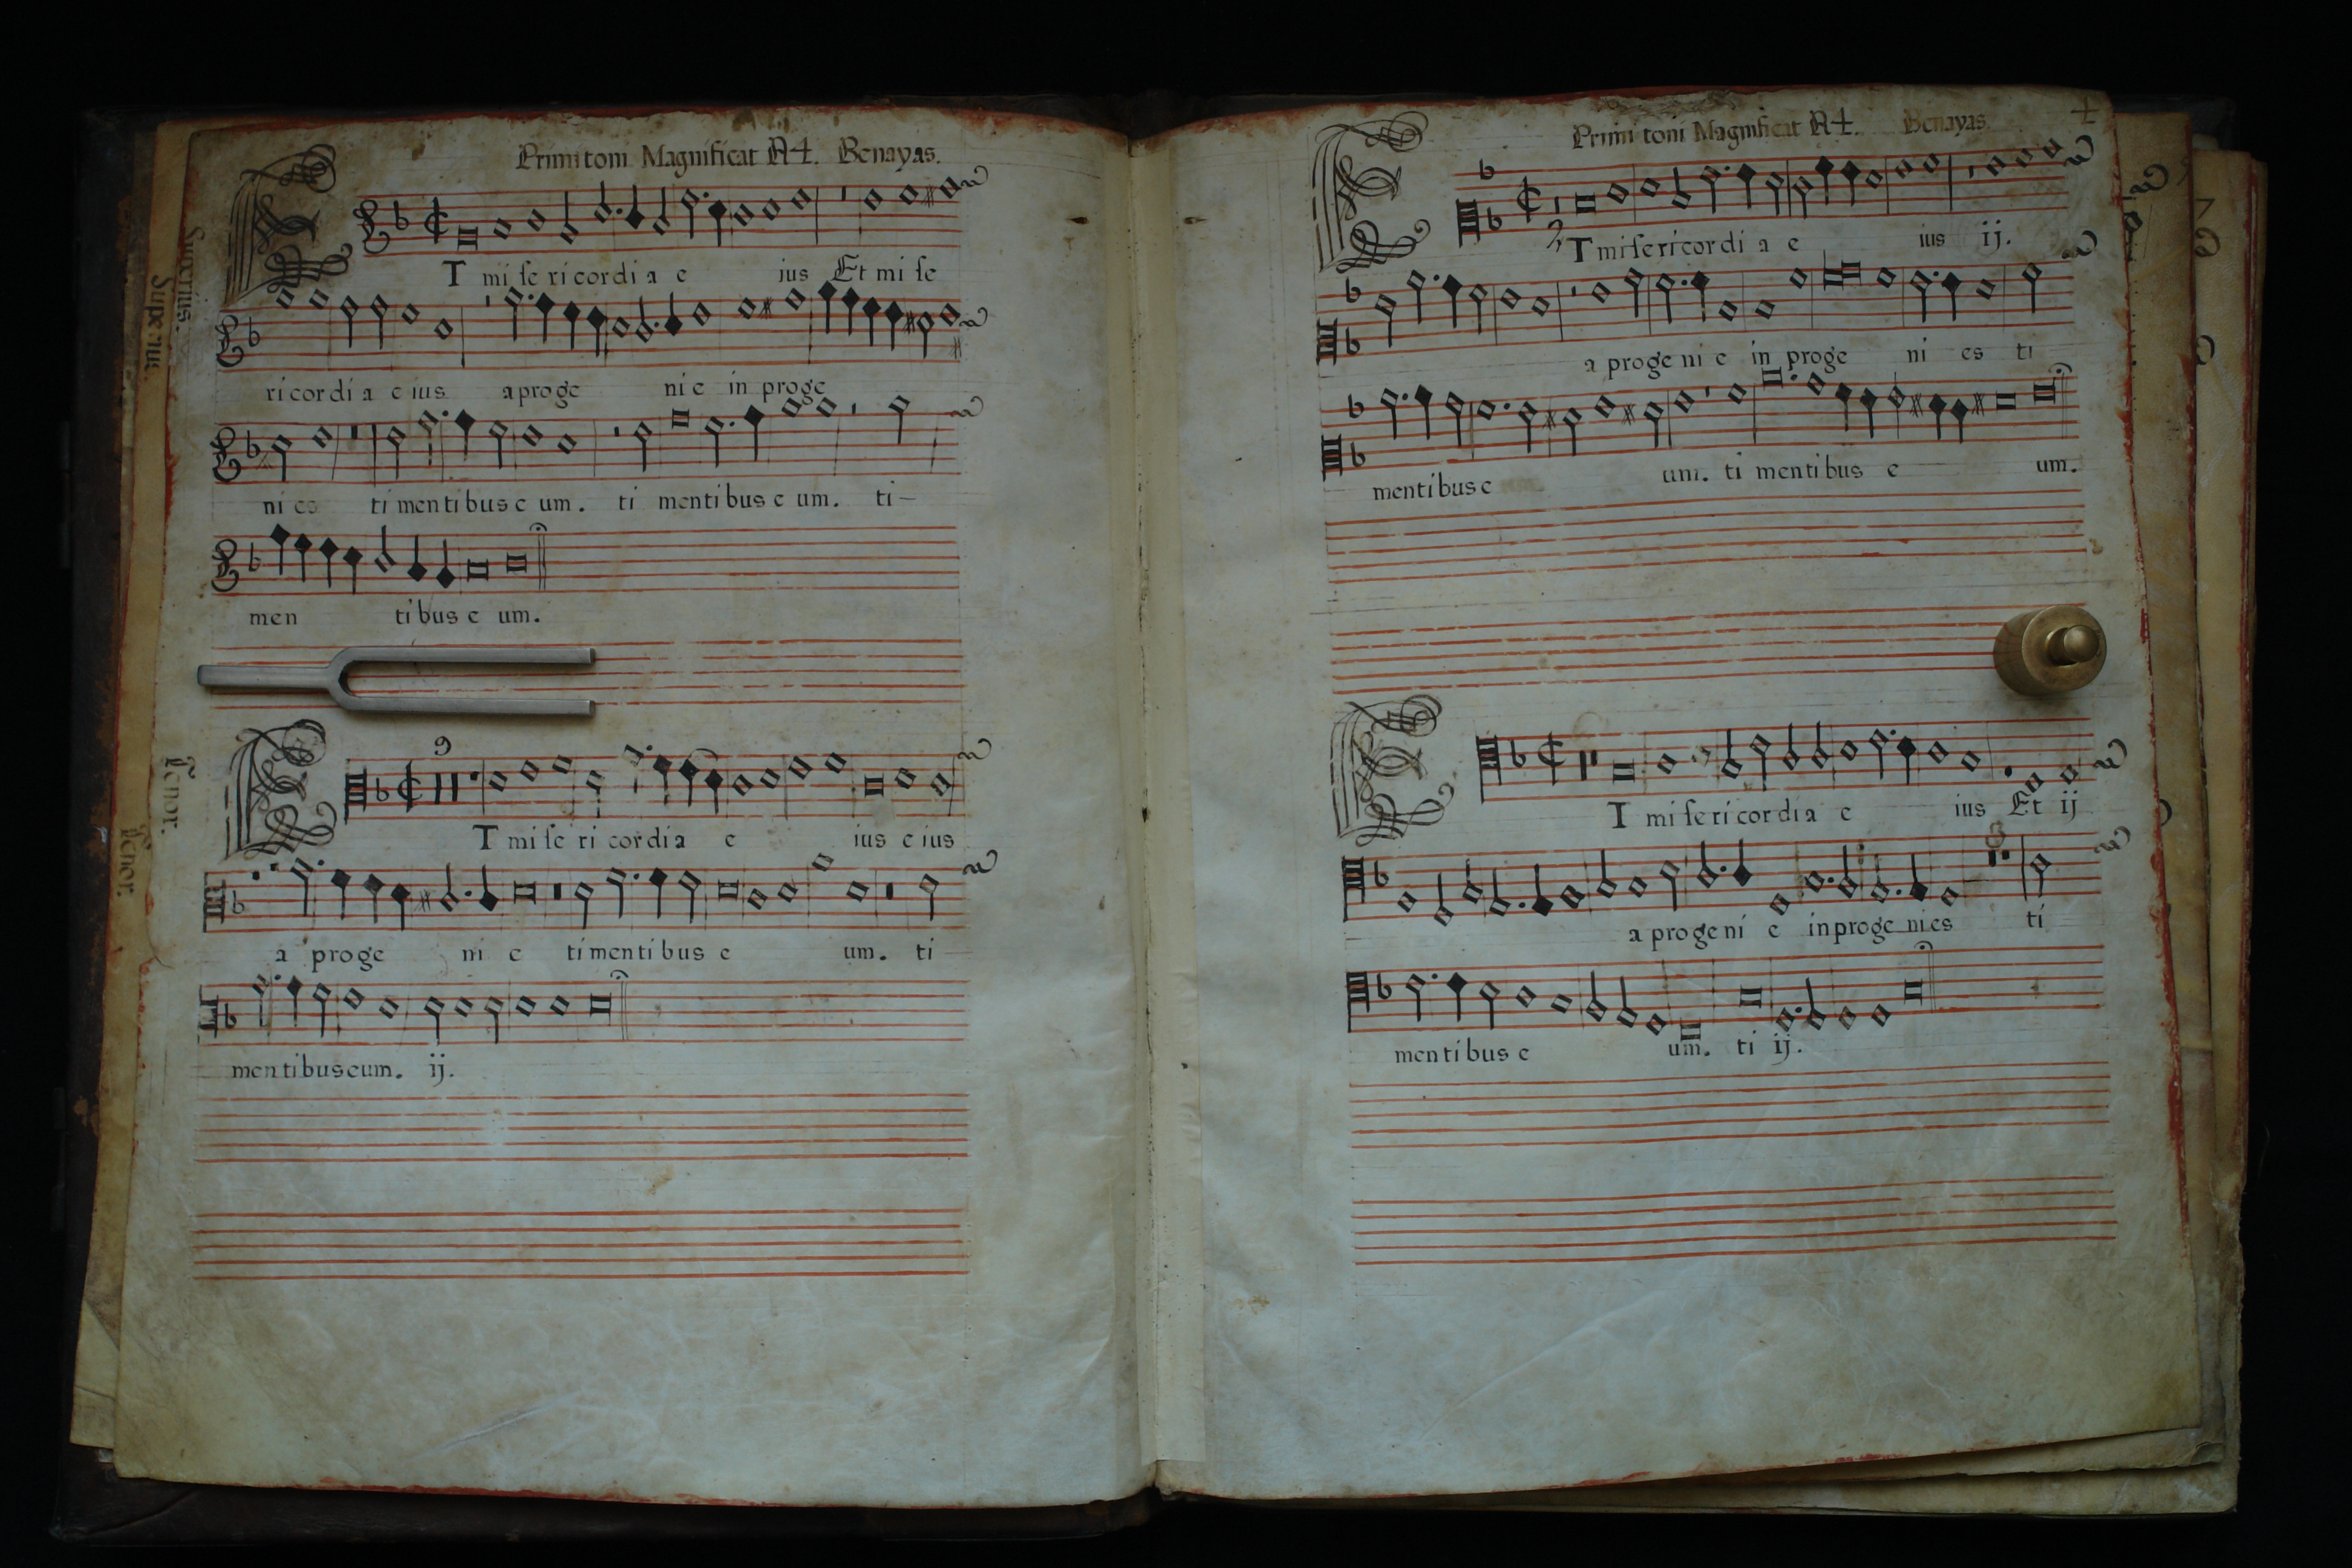 Primi toni Magnificat A4. Benayas.
Superius.
Superius.
ET mi se ri cordi a e ius Et mi se
ri cordi a e ius a proge ni e in proge
ni es ti mentibus e um. ti mentibus e um. ti-
men tibus e um.
9
Tenor.
Tenor.
ET mi se ri cordia e ius e ius
a proge ni e ti mentibus e um. ti
mentibus eum. ij.
Primi toni Magnificat A4. Benayas.
ET misericordi a e ius ij.
a proge ni e in proge ni es ti
mentibus e um. ti mentibus e um.
ET mi se ri cor dia e ius Et ij
a proge ni e in proge nies ti
mentibus e um. ti ij.